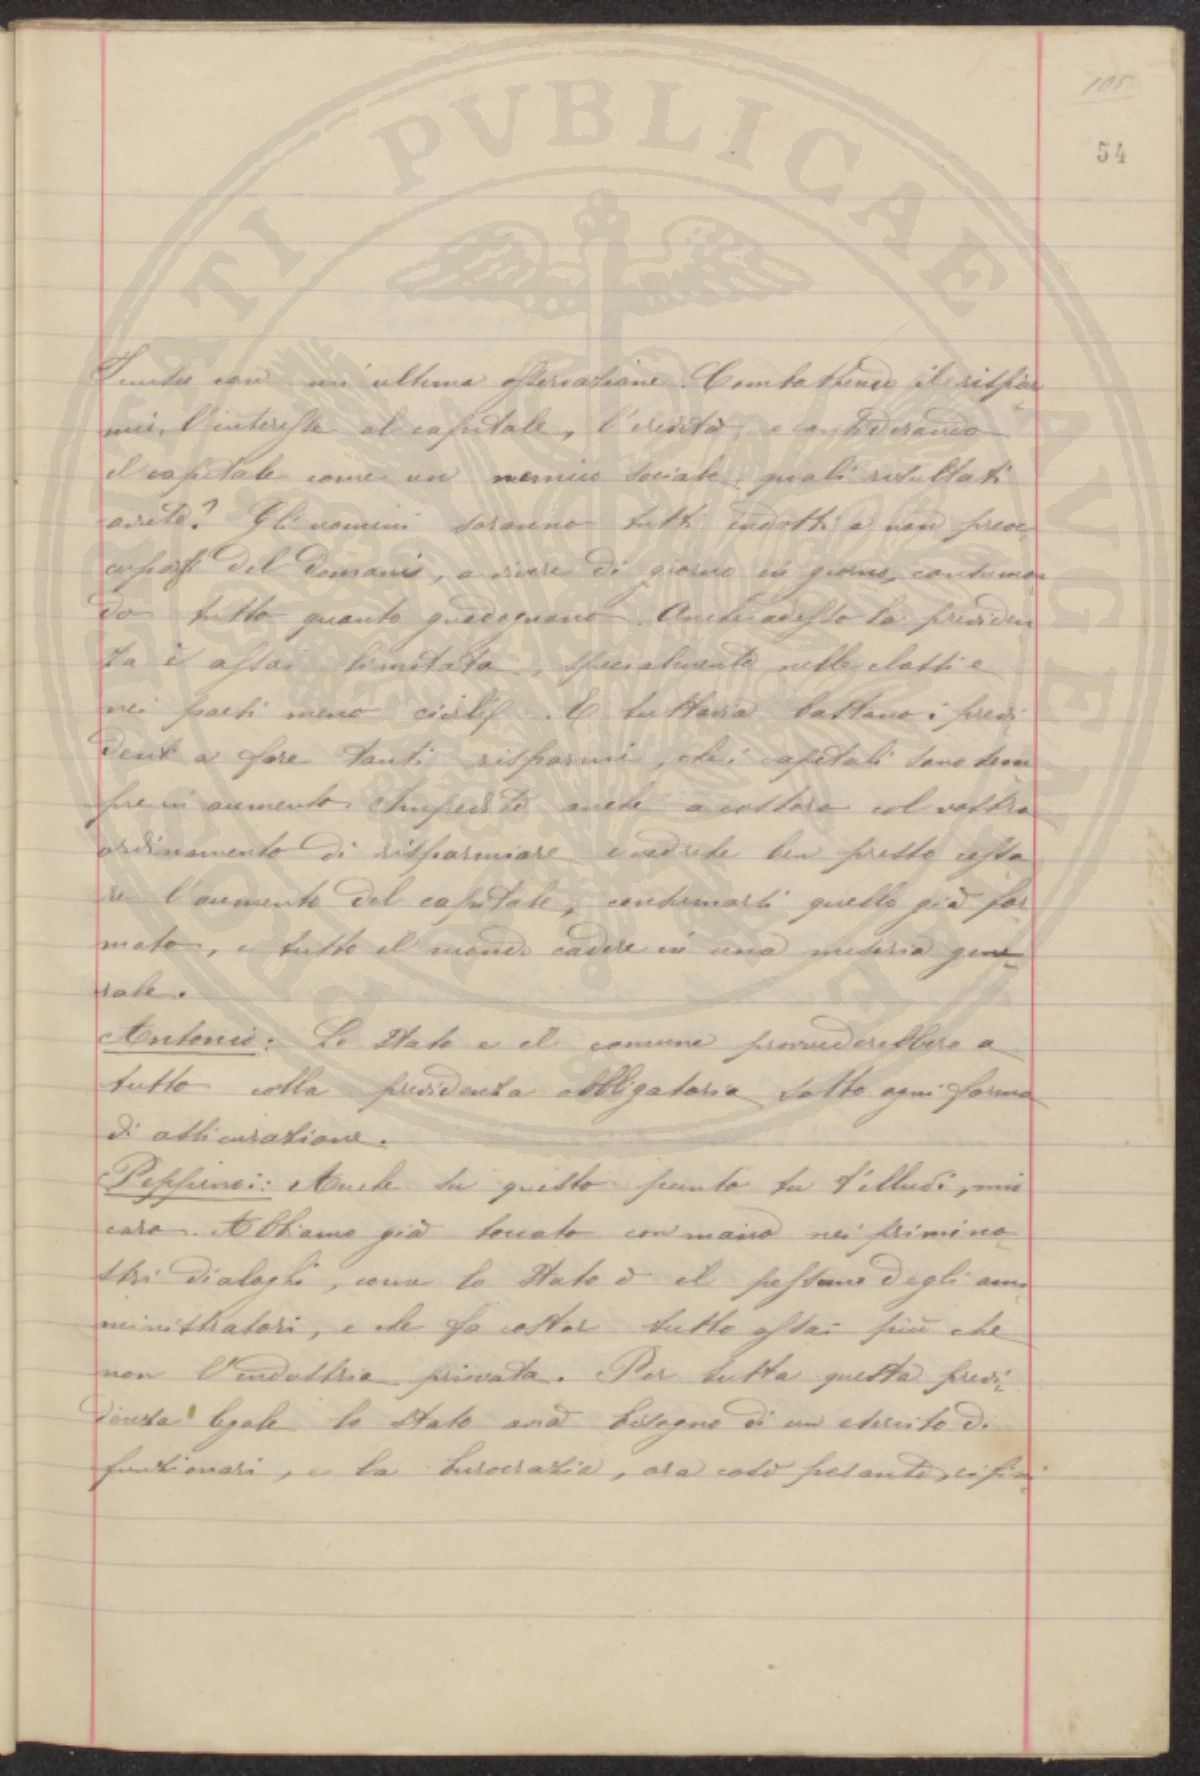 105
54
con un' ultima osservazione. Combattendo il rispar
mio, l'interesse al capitale, l'eredità, e considerando
il capitale come un nemico sociale, quali risultati
avrete? Gli uomini saranno tutti indotti a non preoc
cuparsi del domani, a vivere di giorno in giorno, consuman
do tutto quanto guadagnano. Anche adesso la previden
za è assai limitata, specialmente nelle classi e
nei paesi meno civili. E tuttavia bastano i previ
denti a fare tanti risparmi, che i capitali sono sem
pre in aumento. Impedite anche a costoro col vostro
ordinamento di risparmiare e vedrete ben presto cessa
re l'aumento del capitale, consumarsi quello già for
mato, e tutto il mondo cadere in una miseria gene-
rale.
Antonio: Lo Stato e il comune provvederebbero a
tutto colla previdenza obbligatoria sotto ogni forma
di assicurazione.
Peppino: Anche su questo punto tu t'illudi, mio
caro. Abbiamo già toccato con mano nei primi no-
stri dialoghi, come lo Stato è il pessimo degli am
ministratori, e che fa costar tutto assai più che
non l'industria privata. Per tutta questa previ-
denza legale lo Stato avrà bisogno di un esercito di
funzionari, e la burocrazia, ora così pesante, ci fini
PVBLICAE